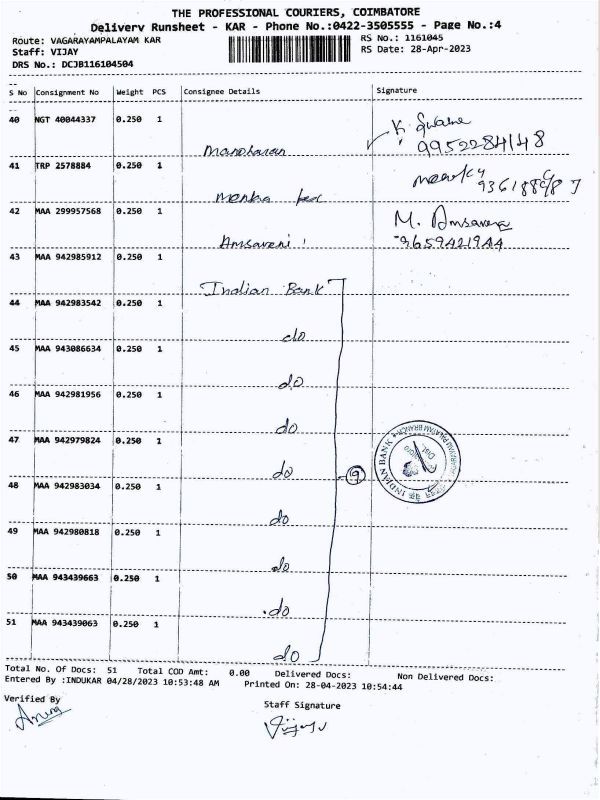 THE PROFESSIONAL COURIERS, COIMBATORE
Delivery Runsheet - KAR - Phone No.:0422-3505555 - Page No.:4
Route: VAGARAYAMPALAYAM KAR RS No.: 1161045
Staff: VIJAY RS Date: 28-Apr-2023
DRS No.: DCJB116104504
S No Consignment No Weight PCS Consignee Details Signature
40 NGT 40044337 0.250 1 K.
Manoharan 9952284148
41 TRP 2578884 0.250 1
Menka
42 MAA 299957568 0.250 1 M. Amsaveni
Amsaveni 9659421944
43 MAA 942985912 0.250 1
Indian Bank
44 MAA 942983542 0.250 1
do
45 MAA 943086634 0.250 1
do
46 MAA 942981956 0.250 1
do
47 MAA 942979824 0.250 1
INDIAN BANK
do 9
48 MAA 942983034 0.250 1
do
49 MAA 942980818 0.250 1
do
50 MAA 943439663 0.250 1
do
51 MAA 943439063 0.250 1
do
Total No. Of Docs: 51 Total COD Amt: 0.00 Delivered Docs: Non Delivered Docs:
Entered By :INDUKAR 04/28/2023 10:53:48 AM Printed On: 28-04-2023 10:54:44
Verified By Staff Signature